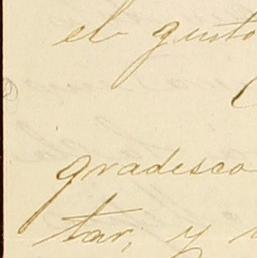 el gusto
gradesco
tar, y